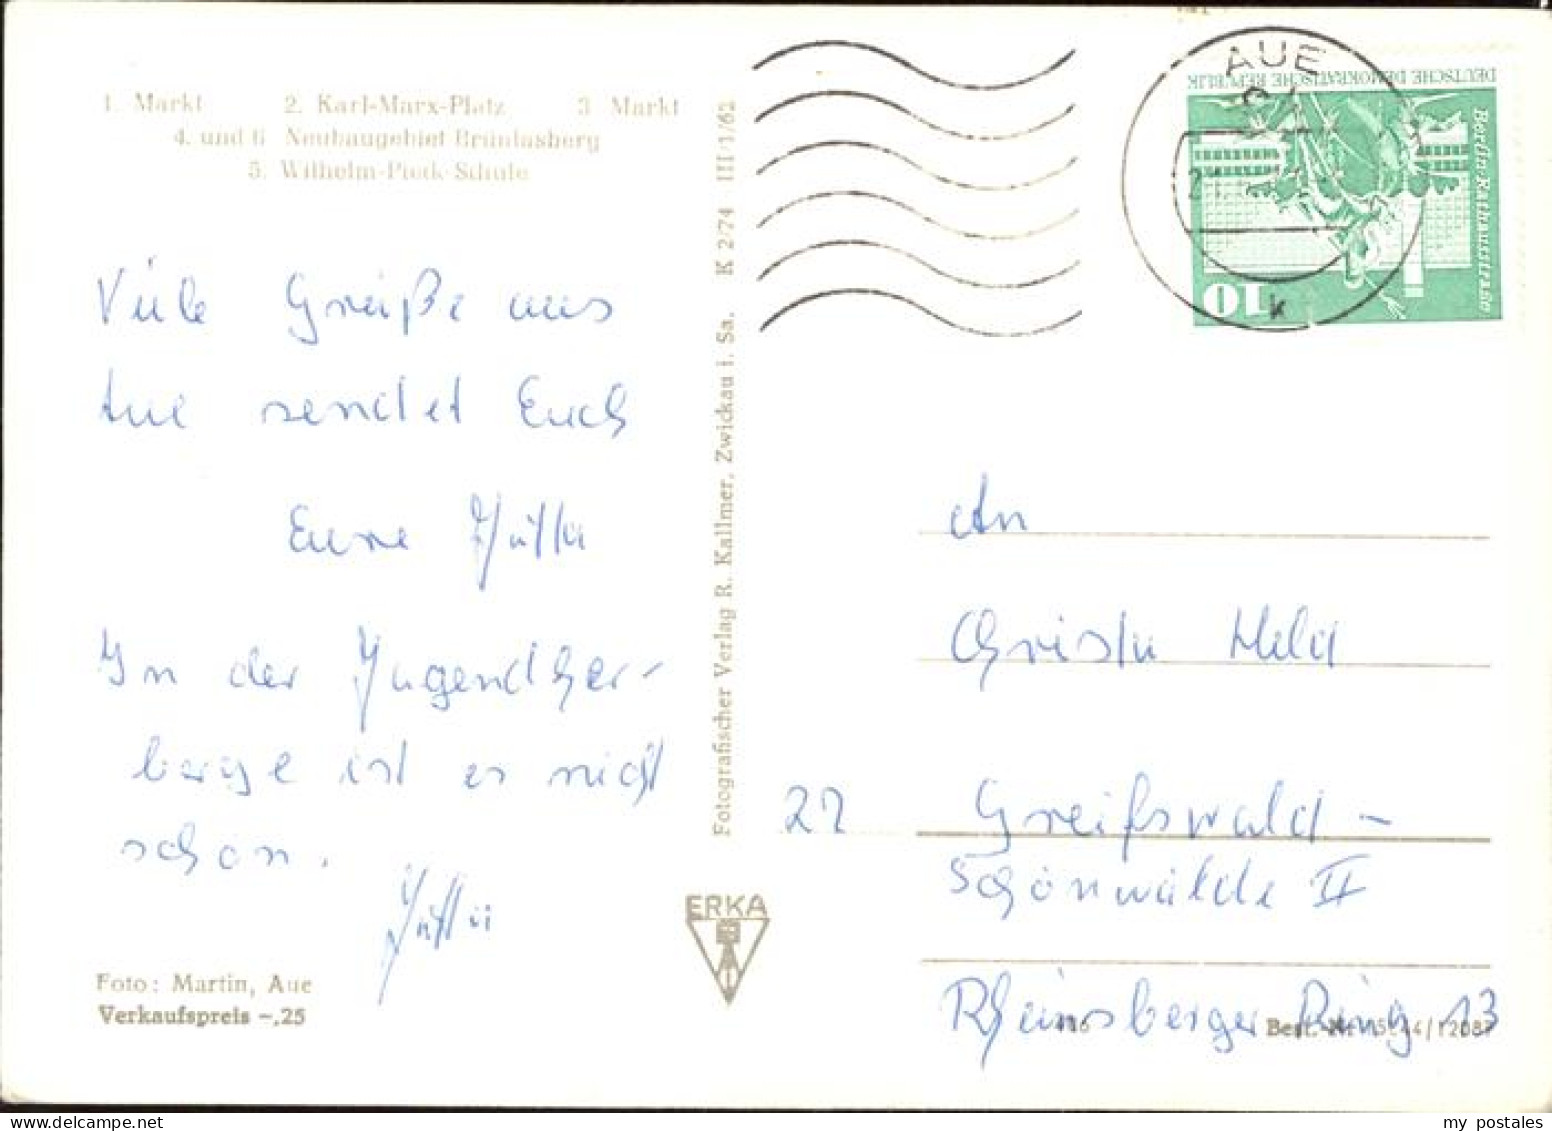 1. Markt 2. Karl-Marx-Platz 3 Markt
4. und 6 Neubaugebiet Brünlasberg
5. Wilhelm-Pieck-Schule
Viele Grüße aus
Aue sendet Euch
Eure
In der Jugendher-
berge ist es nicht
schön.
Foto: Martin, Aue
Verkaufspreis -,25
Fotografischer Verlag R. Kallmer, Zwickau i. Sa. K 2/74 III/1/62
ERKA
AUE
k
DEUTSCHE DEMOKRATISCHE REPUBLIK
Berlin-Rathausstraße
10
An
Christa Held
22 Greifswald -
Schönwalde II
Rheinsberger Ring 13
Best.-Nr.
my postales